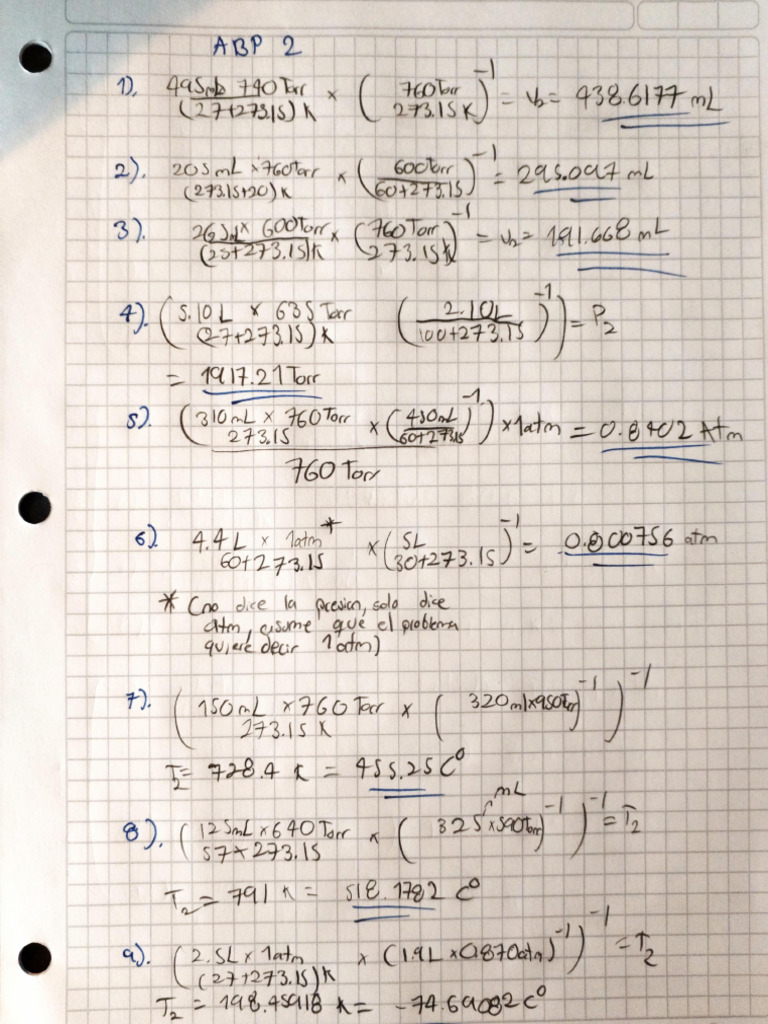 ABP 2
1). 495mL 740 Torr / (27+273.15) K × (760 Torr / 273.15 K)^-1 = V2 = 438.6177 mL
2). 205 mL × 760 Torr / (273.15+20) K × (600 Torr / 60+273.15)^-1 = 295.097 mL
3). 265 mL × 600 Torr / (25+273.15) K × (760 Torr / 273.15 K)^-1 = V2 = 191.668 mL
4). (5.10 L × 635 Torr / (27+273.15) K (2.10 L / 100+273.15)^-1) = P2
= 1917.21 Torr
5). (310 mL × 760 Torr / 273.15 × (450 mL / 60+273.15)^-1) × 1atm = 0.8402 Atm
760 Torr
6). 4.4 L × 1atm* / 60+273.15 × (5L / 30+273.15)^-1 = 0.800756 atm
* (no dice la presion, solo dice
atm, asume que el problema
quiere decir 1 atm)
7). (150 mL × 760 Torr / 273.15 K × (320 ml × 950 Torr)^-1)^-1
T2 = 728.4 K = 455.25 C°
mL
8). (125 mL × 640 Torr / 57+273.15 × (325 × 590 Torr)^-1)^-1 = T2
T2 = 791 K = 518.1782 C°
9). (2.5L × 1atm / (27+273.15) K × (1.9 L × 0.870 atm)^-1)^-1 = T2
T2 = 198.45918 K = -74.69082 C°